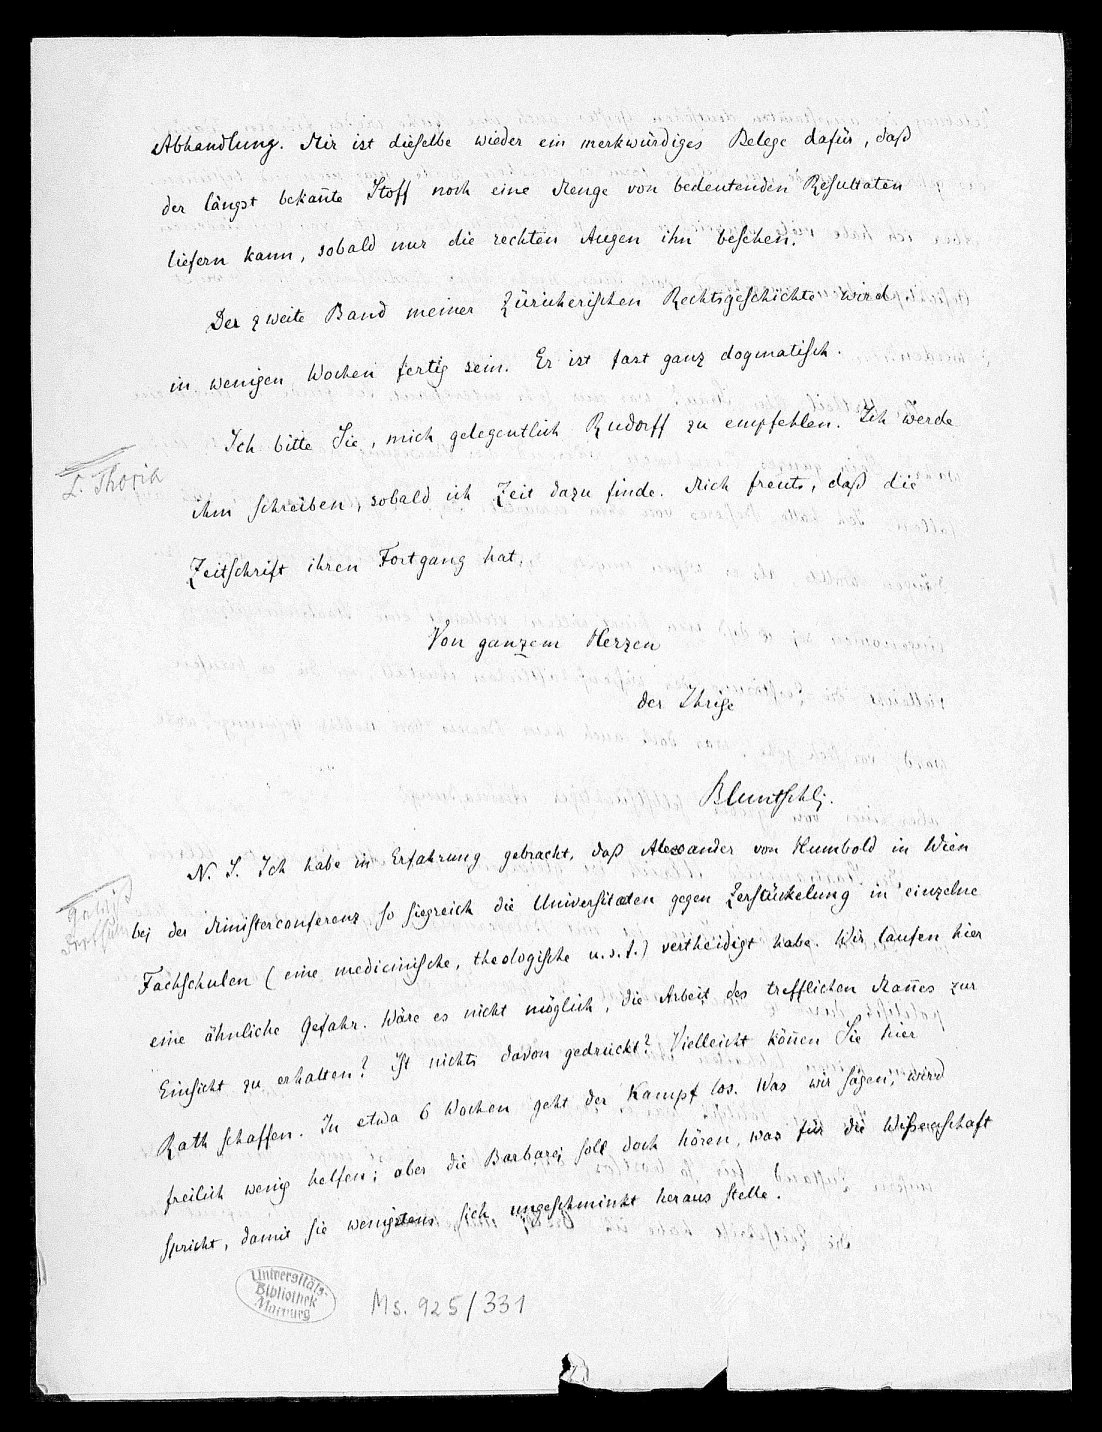 Abhandlung. Mir ist dieselbe wieder ein merkwürdiges Belege dafür, daß
der längst bekan̄te Stoff noch eine Menge von bedeutenden Resultaten
liefern kann, sobald nur die rechten Augen ihn besehen.
Der zweite Band meiner Züricherischen Rechtsgeschichte wird
in wenigen Wochen fertig sein. Er ist fast ganz dogmatisch.
Ich bitte Sie, mich gelegentlich Rudorff zu empfehlen. Ich werde
L. Thoria
ihm schreiben, sobald ich Zeit dazu finde. Mich freuts, daß die
Zeitschrift ihren Fortgang hat.
Von ganzem Herzen
der Ihrige
Bluntschli.
N. S. Ich habe in Erfahrung gebracht, daß Alexander von Humbold in Wien
bei der Ministerconferenz so siegreich die Universitäten gegen Zerstückelung in einzelne
Fachschulen (eine medicinische, theologische u.s.f.) vertheidigt habe. Wir laufen hier
eine ähnliche Gefahr. Wäre es nicht möglich, die Arbeit des trefflichen Man̄es zur
Einsicht zu erhalten? Ist nichts davon gedruckt? Vielleicht kön̄en Sie hier
Rath schaffen. In etwa 6 Wochen geht der Kampf los. Was wir sagen, wird
freilich wenig helfen; aber die Barbarei soll doch hören, was für die Wißenschaft
spricht, damit sie wenigstens sich ungeschminkt heraus stelle.
Universitäts-
Bibliothek
Marburg
Ms. 925/331